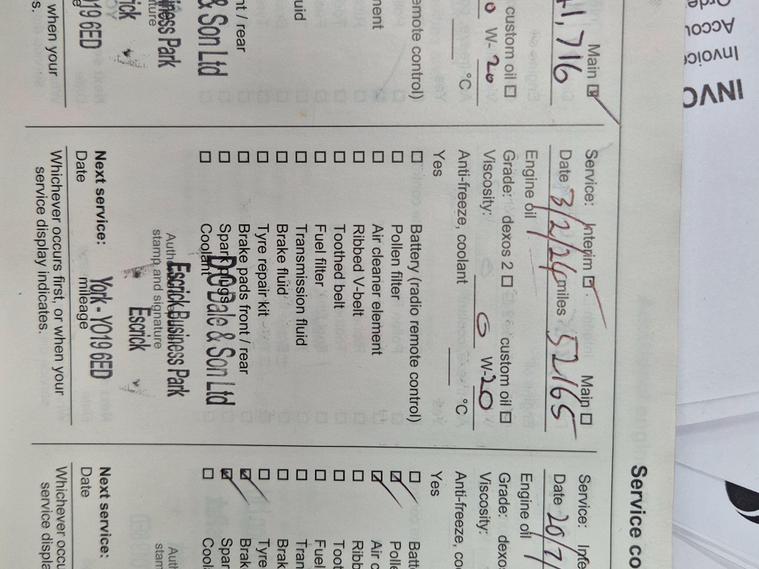 Service co
Main ☑
1,716
custom oil ☐
0 W- 20
°C
emote control)
ment
uid
nt / rear
& Son Ltd
iness Park
ick
19 6ED
when your
s.
Service: Interim ☑ Main ☐
Date 3/2/24 miles 52165
Engine oil
Grade: dexos 2 ☐ custom oil ☐
Viscosity: 0 W-20
Anti-freeze, coolant °C
Yes
☐ Battery (radio remote control)
☐ Pollen filter
☐ Air cleaner element
☐ Ribbed V-belt
☐ Toothed belt
☐ Fuel filter
☐ Transmission fluid
☐ Brake fluid
☐ Tyre repair kit
☐ Brake pads front / rear
☐ Spark plugs
☐ Coolant
D C Dale & Son Ltd
Escrick Business Park
stamp and signature
Escrick
York - YO19 6ED
Next service:
Date mileage
Whichever occurs first, or when your
service display indicates.
Service: Inte
Date 20/7/
Engine oil
Grade: dexo
Viscosity:
Anti-freeze, co
Yes
☐ Batt
☑ Polle
☑ Air c
☐ Ribb
☐ Toot
☐ Fuel
☐ Tran
☐ Brak
☐ Tyre
☑ Brak
☑ Spar
☐ Cool
Auth
stam
Next service:
Date
Whichever occu
service displa
INVO
Invoice
Accou
Orde